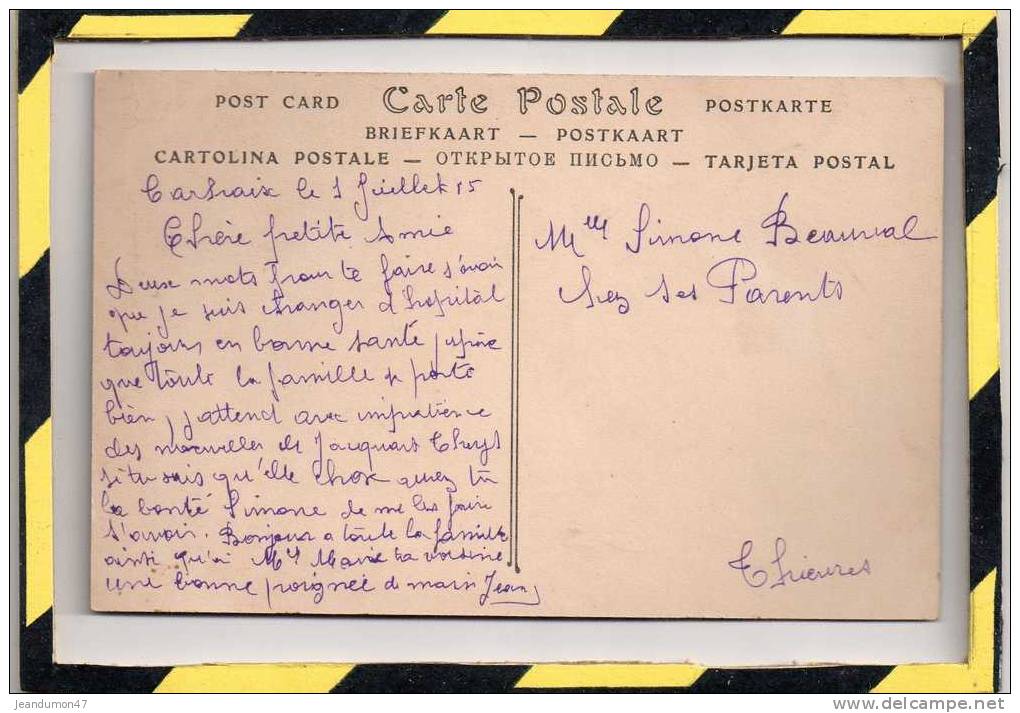 POST CARD Carte Postale POSTKARTE
BRIEFKAART — POSTKAART
CARTOLINA POSTALE — ОТКРЫТОЕ ПИСЬМО — TARJETA POSTAL
le 1 Juillet 15
Chère petite Amie
Deux mots pour te faire s'avoir
que je suis changer d'hopital
toujours en bonne santé j'espère
que toute la famille se porte
bien, j'attend avec impatience
des nouvelles de Jacquart
si tu sais qu'elle chose aurez tu
la bonté Simone de me les faire
s'avoir. Bonjour a toute la famille
ainsi qu'à Mlle Marie ta voisine
une bonne poignée de main Jean
Mlle Simone Beaurval
chez ses Parents
Thièvres
jeandumon47
delcampe.net